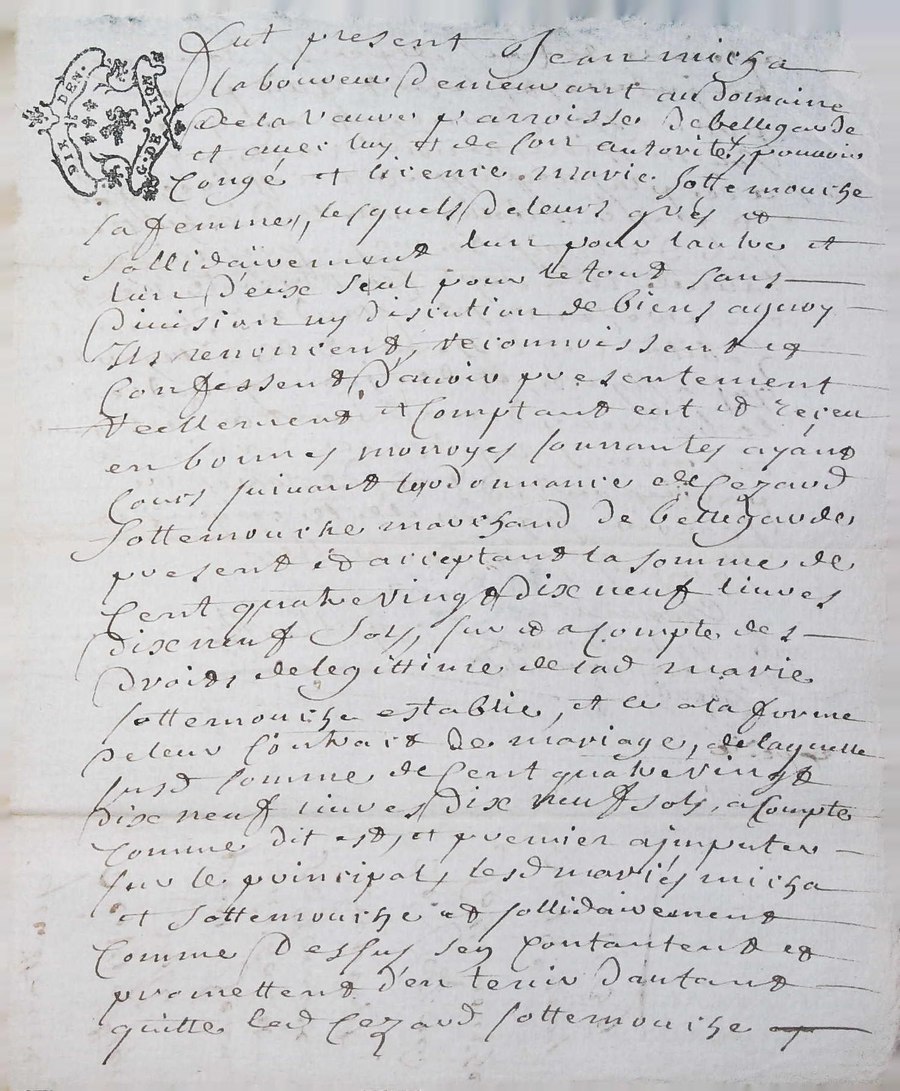 DIX DEN. G. DE LION
Fut present Jean micha
laboureur Demeurant au domaine
Dela Vauvre parroisse de bellegarde
et avec luy et de son autorité, pouvoir
Congé et licence marie Sottemouche
sa femme, lesquels de leurs grés et
sollidairement lun pour lautre et
lun d'eux seul pour le tout sans
Division ny discution de biens aquoy
Ils renoncent, reconnoissent et
Confessent D'avoir presentement
reellement et Comptant eut et reçeu
en bonnes monoyes sonnantes ayant
Cours suivant lordonnance de Cezard
Sottemouche marchand de bellegarde
present et acceptant la somme de
Cent quatrevingt dix neuf livres
dix neuf Sols, sur et a Compte des
Droits de legittime de lad marie
sottemouche establie, et ce a la forme
de leur Contrait de mariage, de laquelle
susd somme de Cent quatrevingt
dix neuf livres dix neuf sols, a Compte
Comme dit est, et premier a jmputer
sur le principal, lesd mariés micha
et sottemouche et sollidairement
Comme Dessus sen Contantent et
promettent d'en tenir dautant
quitte led Cezard sottemouche